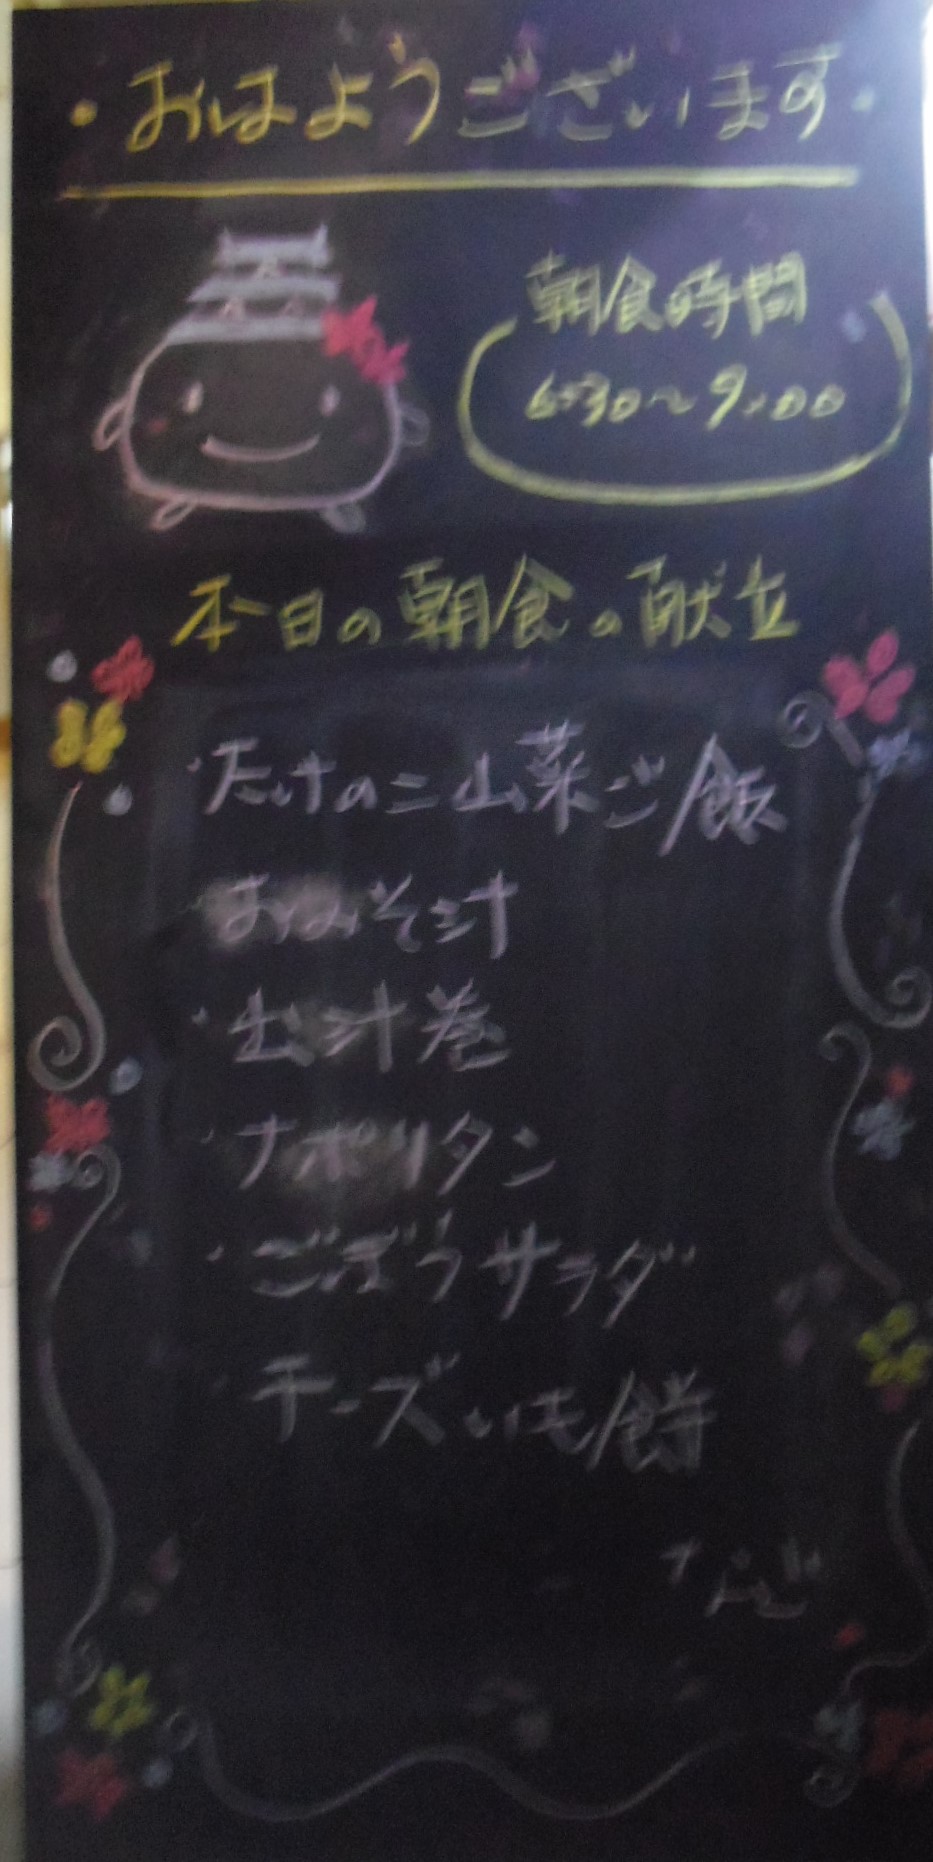 ・おはようございます・
朝食時間
6:30〜9:00
本日の朝食の献立
・たけのこ山菜ご飯
・おみそ汁
・出汁巻
・ナポリタン
・ごぼうサラダ
・チーズいも餅
など